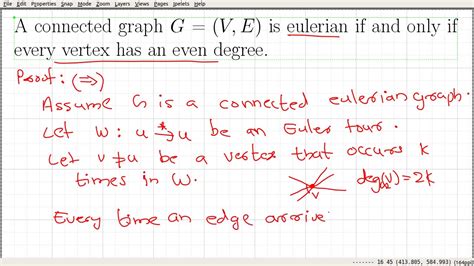 Annotate Edit Options Properties Snap Mode Zoom Layers View Presets Plugins Help
A connected graph G = (V, E) is eulerian if and only if
every vertex has an even degree.
Proof: (⇒)
Assume G is a connected eulerian graph.
Let W: u →* u be an Euler tour.
Let v ≠ u be a vertex that occurs k
times in W.
v
deg(v) = 2k
Every time an edge arrive
16 45 (413.805, 584.993)